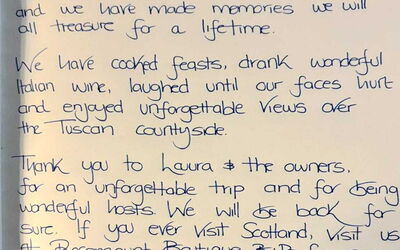 and we have made memories we will
all treasure for a lifetime.
We have cooked feasts, drank wonderful
Italian wine, laughed until our faces hurt
and enjoyed unforgettable views over
the Tuscan countyside.
Thank you to Laura & the owners.
for an unforgettable trip and for being
wonderful hosts. We will be back for
sure. If you ever visit Scotland, visit us
At